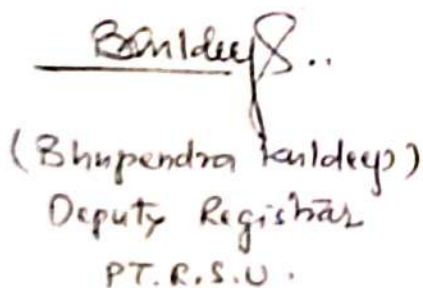 BKuldeep..
(Bhupendra Kuldeep)
Deputy Registrar
PT.R.S.U.